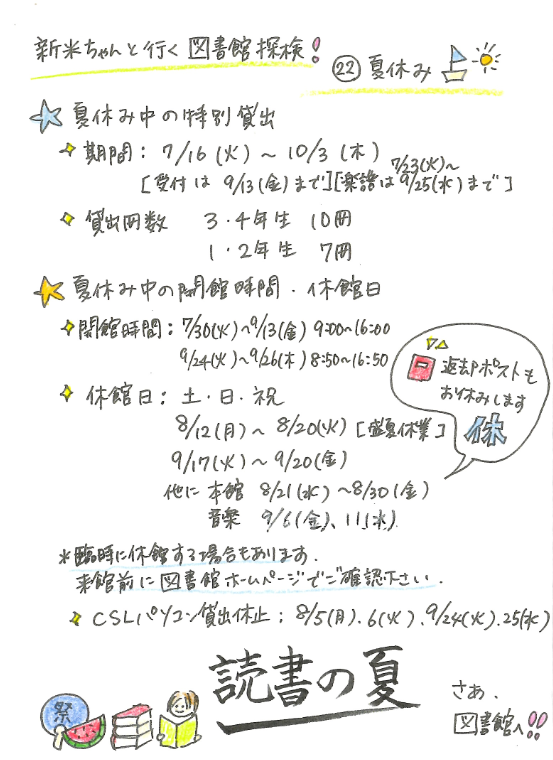 新米ちゃんと行く 図書館探検!
㉒夏休み
夏休み中の特別貸出
期間: 7/16(火)~10/3(木)
[受付は 9/13(金)まで][楽譜は 7/23(火)~9/25(水)まで]
貸出冊数 3・4年生 10冊
1・2年生 7冊
夏休み中の開館時間・休館日
開館時間: 7/30(火)~9/13(金) 9:00~16:00
9/24(火)~9/26(木) 8:50~16:50
返却ポストも
お休みします
休
休館日: 土・日・祝
8/12(月)~8/20(火)[盛夏休業]
9/17(火)~9/20(金)
他に 本館 8/21(水)~8/30(金)
音楽 9/6(金)、11(水)
*臨時に休館する場合もあります.
来館前に図書館ホームページでご確認下さい.
CSLパソコン貸出休止: 8/5(月).6(火).9/24(火).25(水)
祭
読書の夏
さあ.
図書館へ!!